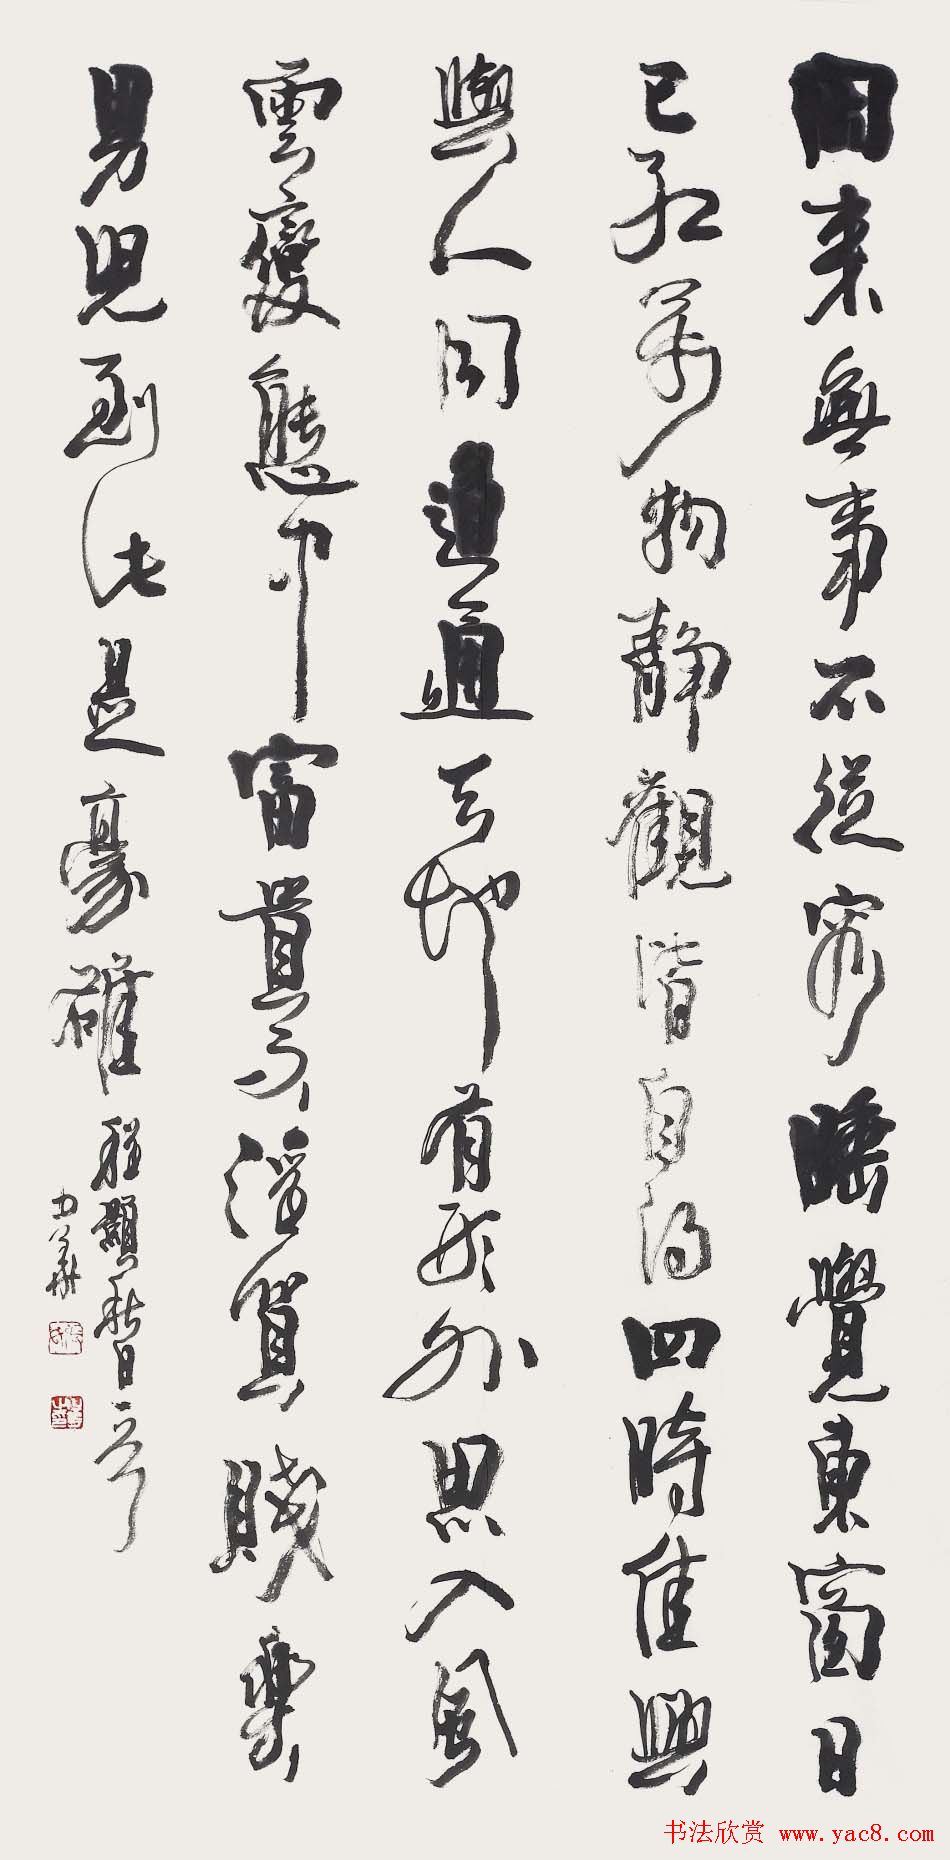 閒来無事不從容睡覺東窗日
已紅萬物静觀皆自得四時佳興
與人同道通天地有形外思入風
雲變態中富貴不淫貧賤樂
男兒到此是豪雄 程顥秋日一首
书法欣赏 www.yac8.com